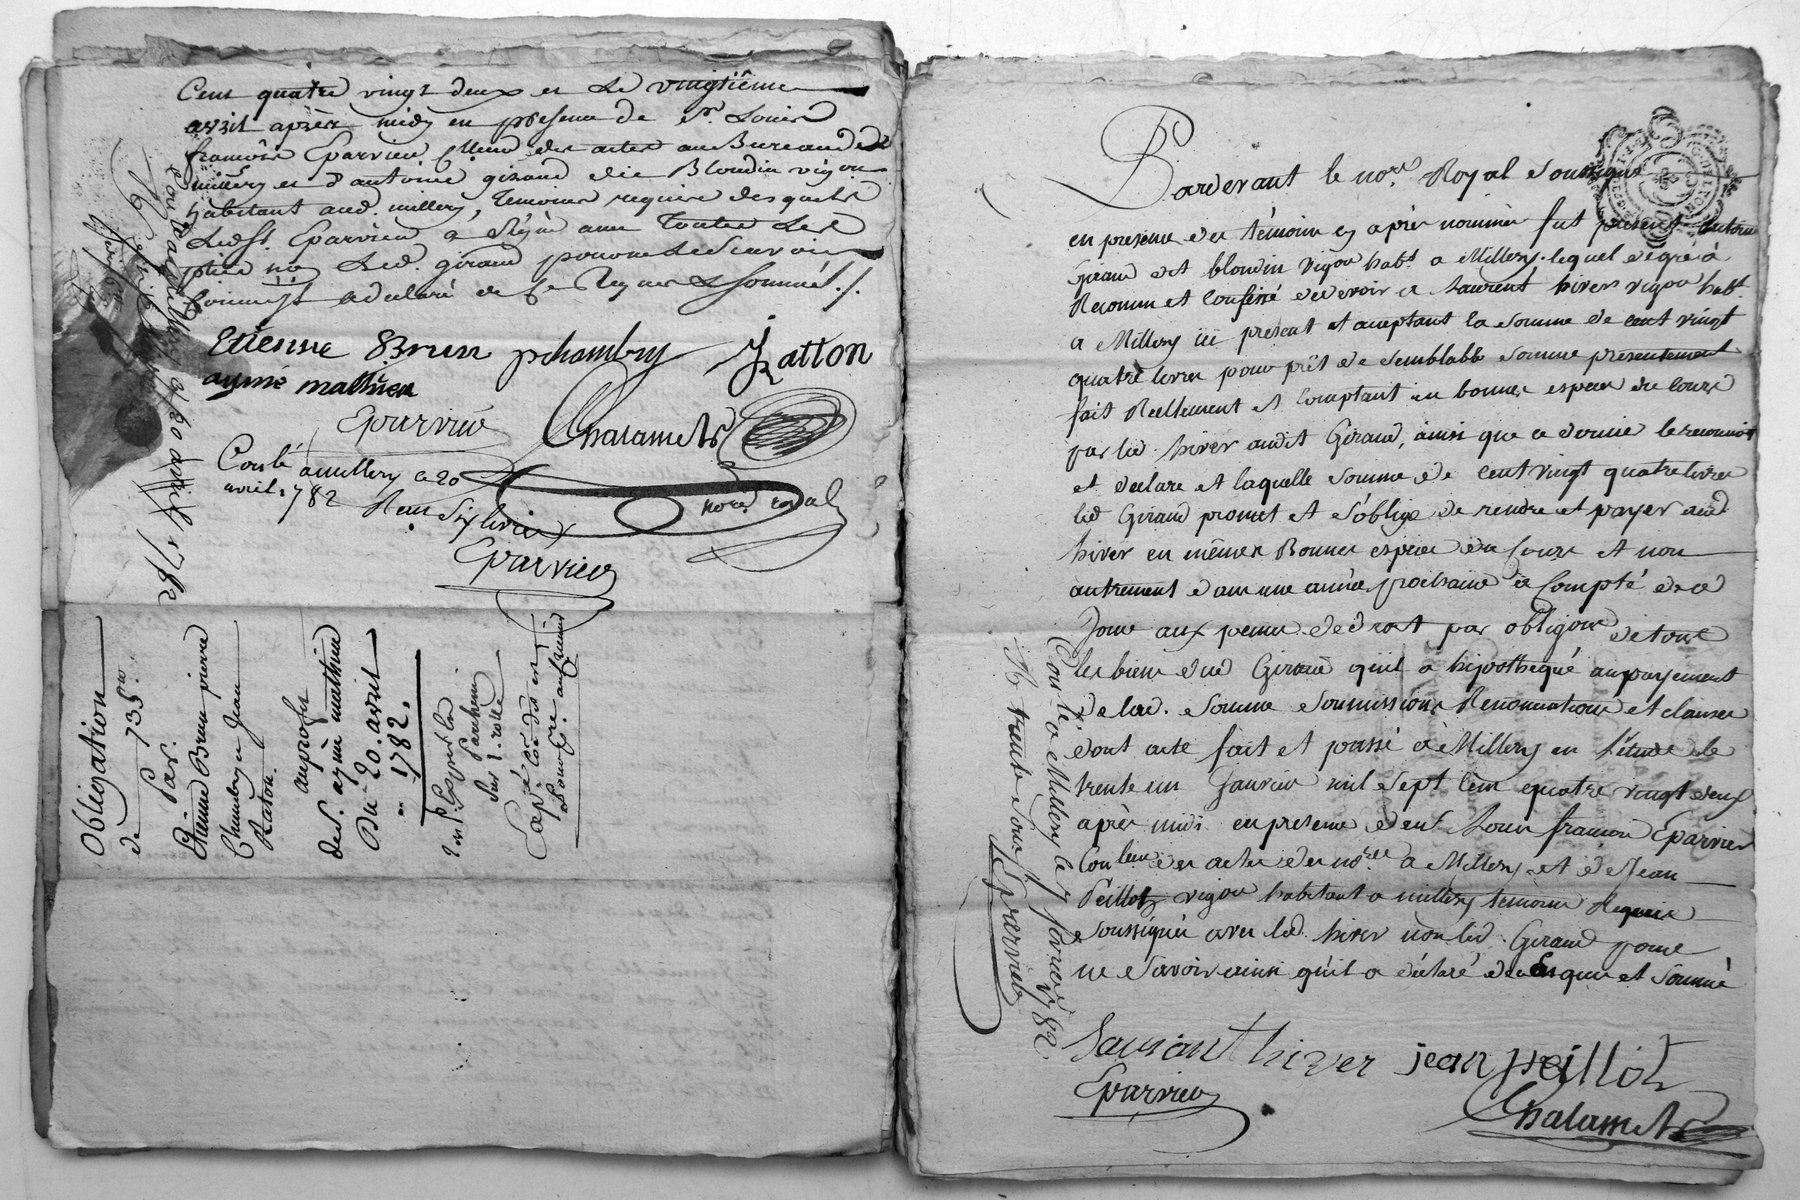 Cent quatre vingt deux et le vingtième
avril après midy en présence de Sr. Louis
françois Eparvieu Clleur des actes au Bureau de
millery et d'antoine giraud dit Blondin vigon
habitant aud. millery, temoins requis desquels
Ledst. Eparvieu a signé avec toutes les
non Led. giraud pour ne le scavoir
a declaré de ce requis & sommé ./.
Etienne Brun pchambry J Ratton
aymé mathieu
Eparvieu
Chalamets
Conlé a millery ce 20
avril 1782 Reçu six livres
nore. royal
Eparvieu
avril 1782
Obligation
de 735 ₶.
Par
Etienne Brun pierre
Chambry et Jean
Raton.
au profit
de S. aymé mathieu
Du 20. avril
1782.
Parchemin
sur 1. rolle
Pardevant le nore. Royal Soussigné
en présence des témoins cy après nommés fut présent Antoine
Giraud dit blondin vigon habt. a Millery. lequel de gré à
Reconnu et confessé devoir à Laurent hiver vigon habt.
a Millery ici présent et aceptant la somme de cent vingt
quatre livres pour prêt de semblable somme présentement
fait Réellement et comptant en bonnes especes du cours
par led hiver audit Giraud, ainsi que ce dernier le reconnoit
et declare et laquelle somme de cent vingt quatre livres
led Giraud promet et s'oblige de rendre et payer aud.
hiver en mêmes Bonnes especes du cours et non
autrement dans une année prochaine à compté de ce
jour aux peines de droit par obligon de tous
les biens dud Giraud qu'il a hipothequé au payement
de lad. somme soumissions Renonciations et clauses
dont acte fait et passé à Millery en l'étude le
trente un Janvier mil sept cent quatre vingt deux
après midi en présence de sr Louis francois Eparvieu
Conleur des actes des nores a Millery et de Jean
Peillot vigon habitant a millery temoins Requis
soussignés avec led. hiver non led. Giraud pour
ne savoir ainsi qu'il a déclaré de ce Enquis et sommé
Conlé à Millery le 7 fevrier 1782
R trente sous
Eparvieu
Laurant hiver jean peillot
Eparvieu
Chalamets